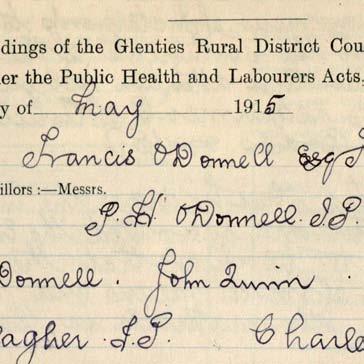 dings of the Glenties Rural District Cou
er the Public Health and Labourers Acts,
y of May 1915
Francis O'Donnell Esq J
illors :—Messrs.
P. H. O'Donnell. J.P.
Donnell. John Quinn
agher J.P. Charle